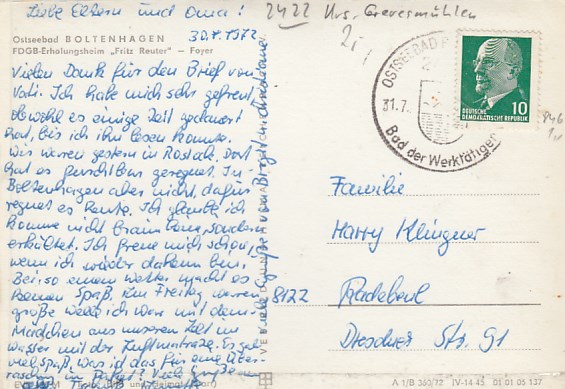 Liebe Eltern und Oma!
30.7.1972
Ostseebad BOLTENHAGEN
FDGB-Erholungsheim „Fritz Reuter" — Foyer
Vielen Dank für den Brief von
Vati. Ich habe mich sehr gefreut,
obwohl es einige Zeit gedauert
hat, bis ich ihn lesen konnte.
Wir waren gestern in Rostock. Dort
hat es furchtbar geregnet. In
Boltenhagen aber nicht, dafür
regnet es heute. Ich glaube ich
komme nicht braun heim, sondern
erkältet. Ich freue mich schon,
wenn ich wieder daheim bin.
Bei so einem Wetter macht es
keinen Spaß. Am Freitag waren
große Wellen ich war mit den
Mädchen aus unserem Zelt im
Wasser mit der Luftmatratze. Es
viel Spaß. Was ist das für eine Über
Viele Grüße von
2422 Krs. Grevesmühlen
OSTSEEBAD
31.7.
Bad der Werktätigen
DEUTSCHE
DEMOKRATISCHE REPUBLIK
10
Familie
Harry Klingner
8122 Radebeul
Dresdner Str. 91
A 1/B 363/72 IV-14-45 01 01 05 137